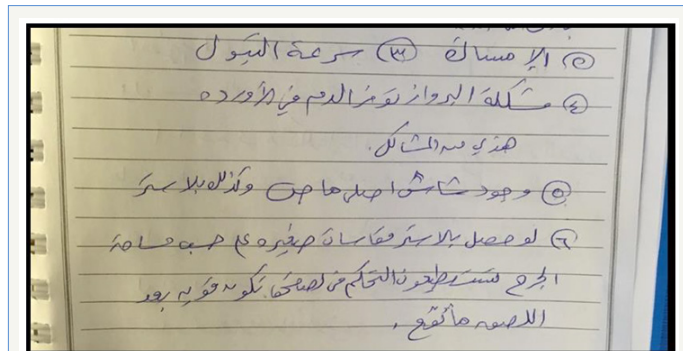 ② الإمساك ③ سرعة التبول
④ مشكلة البرواز توفر الدم في الأورده
هذي من المشاكل.
⑤ وجود شاش اصلي ماحي وكذلك بلاستر
⑥ لو حصل بلاستر مقاسات صغيره ع حسب مساحة
الجرح تستطيعون التحكم في لصقها تكون قويه بعد
اللصق ماتقع.